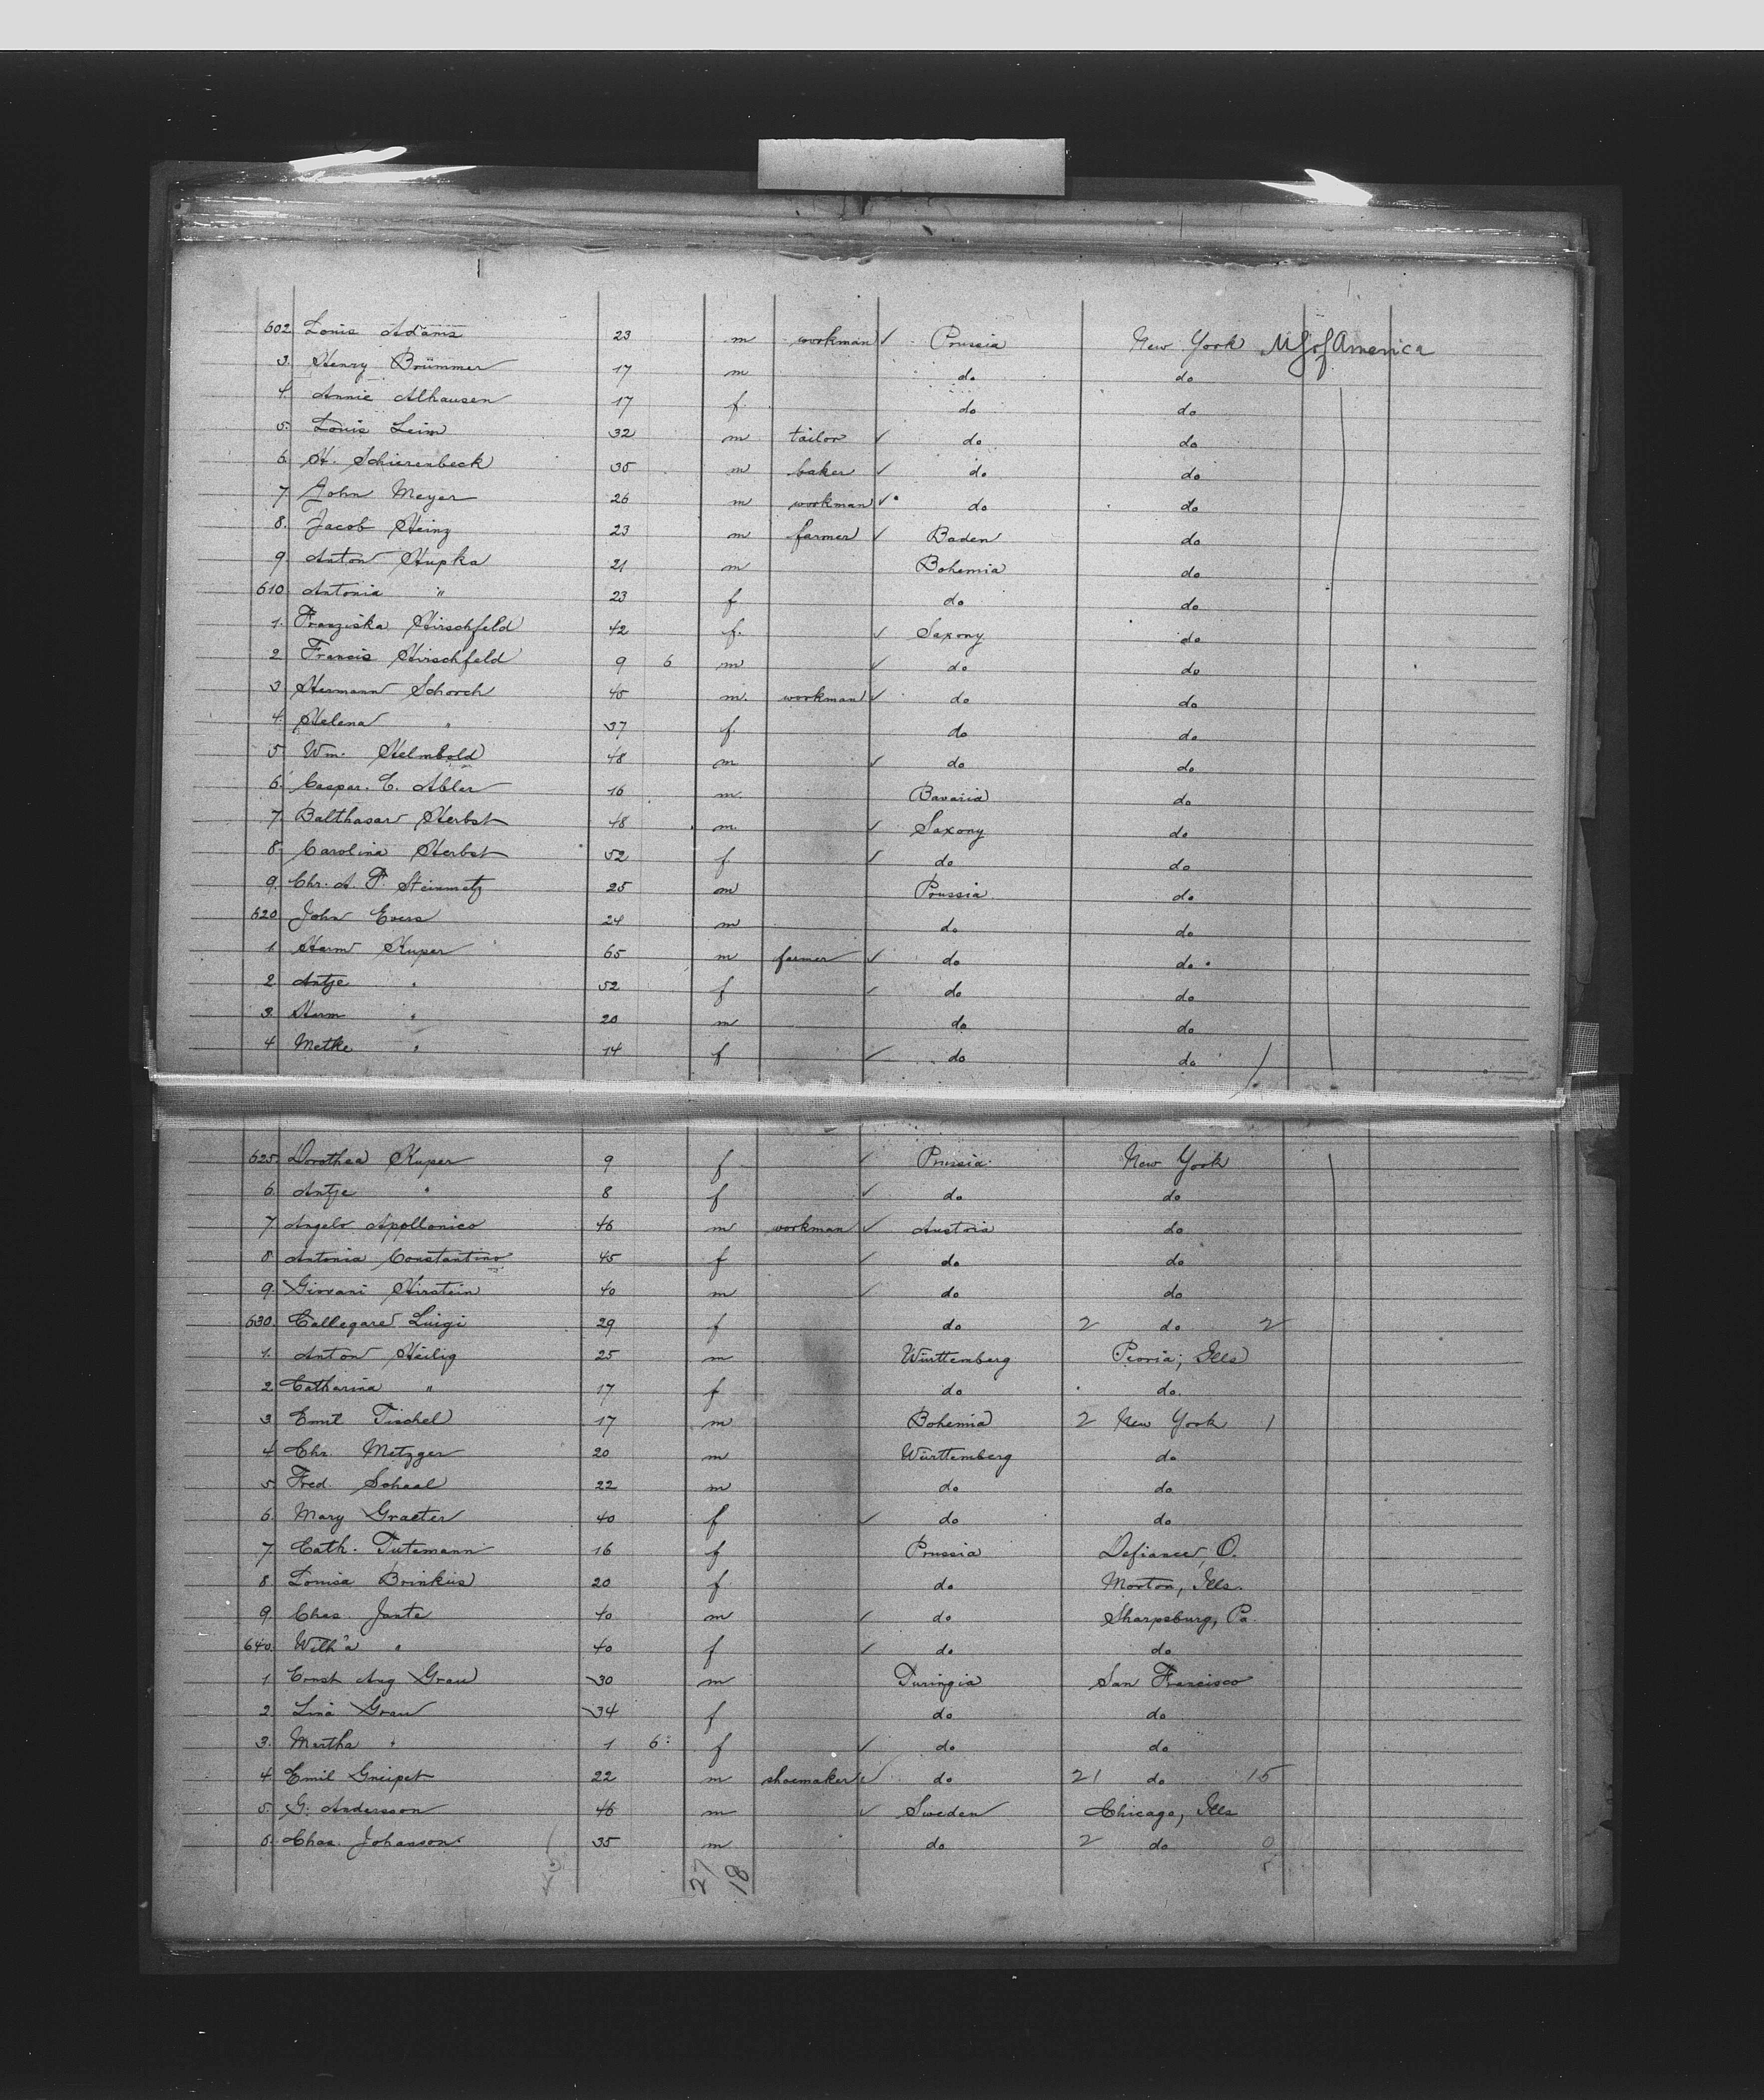 602 Louis Adams 23 m workman ✓ Prussia New York U S of America
3. Henry Brümmer 17 m do do
4. Annie Alhausen 17 f. do do
5. Louis Leim 32 m tailor ✓ do do
6. H. Schierenbeck 35 m baker ✓ do do
7 John Meyer 26 m workman ✓ do do
8. Jacob Heinz 23 m farmer ✓ Baden do
9 Anton Hupka 21 m Bohemia do
610 Antonia " 23 f do do
1. Franziska Hirschfeld 42 f. ✓ Saxony do
2 Francis Hirschfeld 9 6 m ✓ do do
3 Hermann Schorch 45 m. workman ✓ do do
4. Helena " 37 f. do do
5 Wm. Helmbold 48 m ✓ do do
6. Caspar. C. Abler 16 m. Bavaria do
7. Balthasar Herbst 48 m. ✓ Saxony do
8. Carolina Herbst 52 f. ✓ do do
9. Chr. A. F. Steinmetz 25 m Prussia do
620 John Evers 24 m do do
1 Harm Kuper 65 m farmer ✓ do do
2. Antje " 52 f ✓ do do
3. Harm " 20 m do do
4 Metke " 14 f ✓ do do
625. Dorothea Kuper 9 f ✓ Prussia New York
6. Antje " 8 f ✓ do do
7. Angelo Apollonico 46 m workman ✓ Austria do
8 Antonia Constantino 45 f ✓ do do
9. Giovani Hirstein 40 m ✓ do do
630. Callegare Luigi 29 f do 2 do 2
1. Anton Heilig 25 m Württemberg Peoria, Ills
2 Catharina " 17 f do do.
3. Emil Tischel 17 m Bohemia 2 New York 1
4 Chr. Metzger 20 m Württemberg do
5 Fred. Scheal 22 m do do
6. Mary Graeter 40 f ✓ do do
7 Cath. Tutemann 16 f Prussia Defiance, O.
8. Louisa Brinkus 20 f. do Morton, Ills.
9. Chas. Jante 40 m ✓ do Sharpsburg, Pa.
640. Wilh'a " 40 f ✓ do do
1 Ernst Aug Grau 30 m Turingia San Francisco
2. Lina Grau 34 f do do
3. Martha " 1 6 f ✓ do do
4 Emil Gneipel 22 m shoemaker ✓ do 21 do 15
5. G. Andersson 46 m ✓ Sweden Chicago, Ills
6. Chas. Johanson 35 m do 2 do
27 18